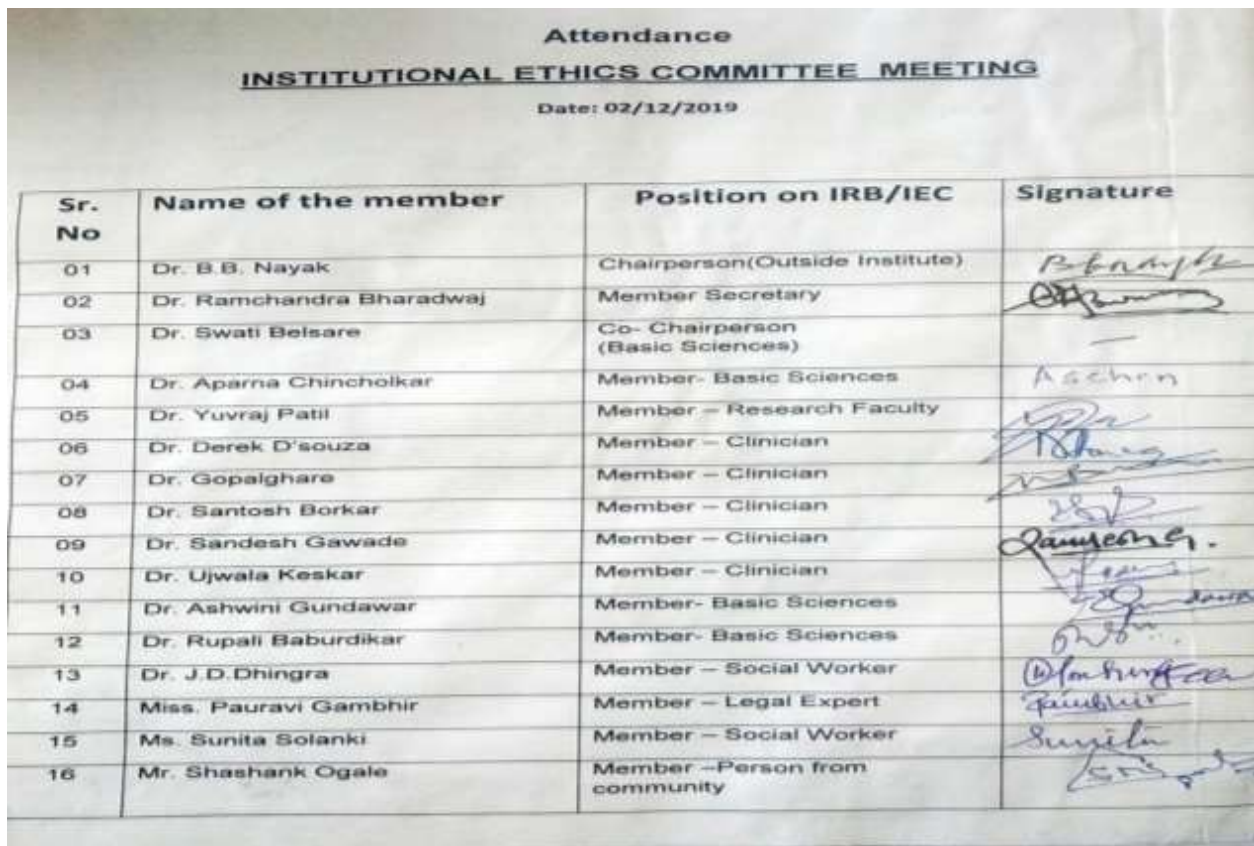 Attendance
INSTITUTIONAL ETHICS COMMITTEE MEETING
Date: 02/12/2019
Sr. No Name of the member Position on IRB/IEC Signature
01 Dr. B.B. Nayak Chairperson(Outside Institute)
02 Dr. Ramchandra Bharadwaj Member Secretary
03 Dr. Swati Belsare Co- Chairperson (Basic Sciences) —
04 Dr. Aparna Chincholkar Member- Basic Sciences
05 Dr. Yuvraj Patil Member – Research Faculty
06 Dr. Derek D'souza Member – Clinician
07 Dr. Gopalghare Member – Clinician
08 Dr. Santosh Borkar Member – Clinician
09 Dr. Sandesh Gawade Member – Clinician
10 Dr. Ujwala Keskar Member – Clinician
11 Dr. Ashwini Gundawar Member- Basic Sciences
12 Dr. Rupali Baburdikar Member- Basic Sciences
13 Dr. J.D.Dhingra Member – Social Worker
14 Miss. Pauravi Gambhir Member – Legal Expert
15 Ms. Sunita Solanki Member – Social Worker Sunita
16 Mr. Shashank Ogale Member –Person from community